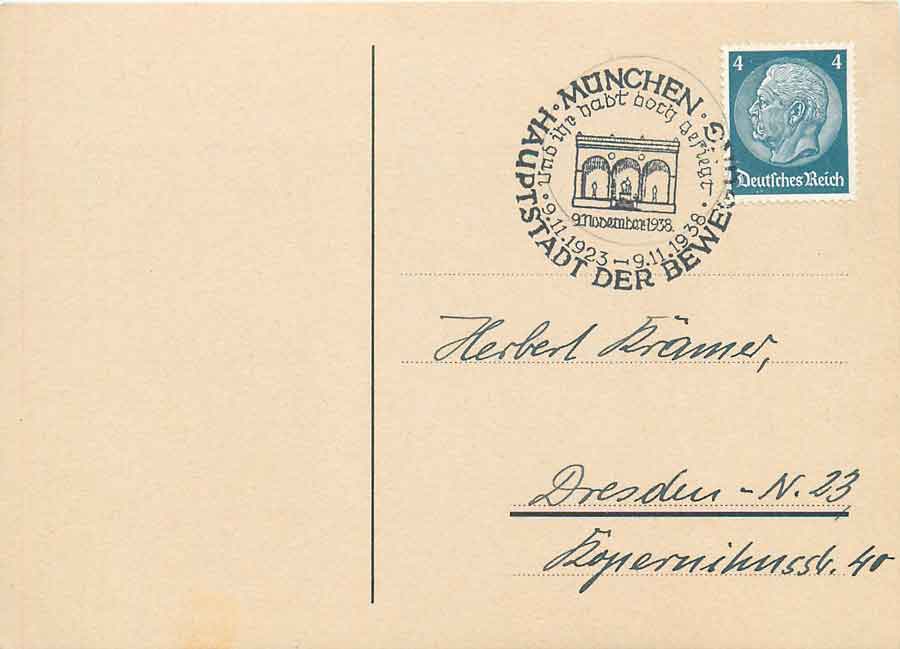 MÜNCHEN · HAUPTSTADT DER BEWEGUNG ·
Und ihr habt doch gesiegt
9. November 1938.
9.11.1923 — 9.11.1938
4 4
Deutsches Reich
Herbert Krämer,
Dresden - N. 23
Kopernikusstr. 40